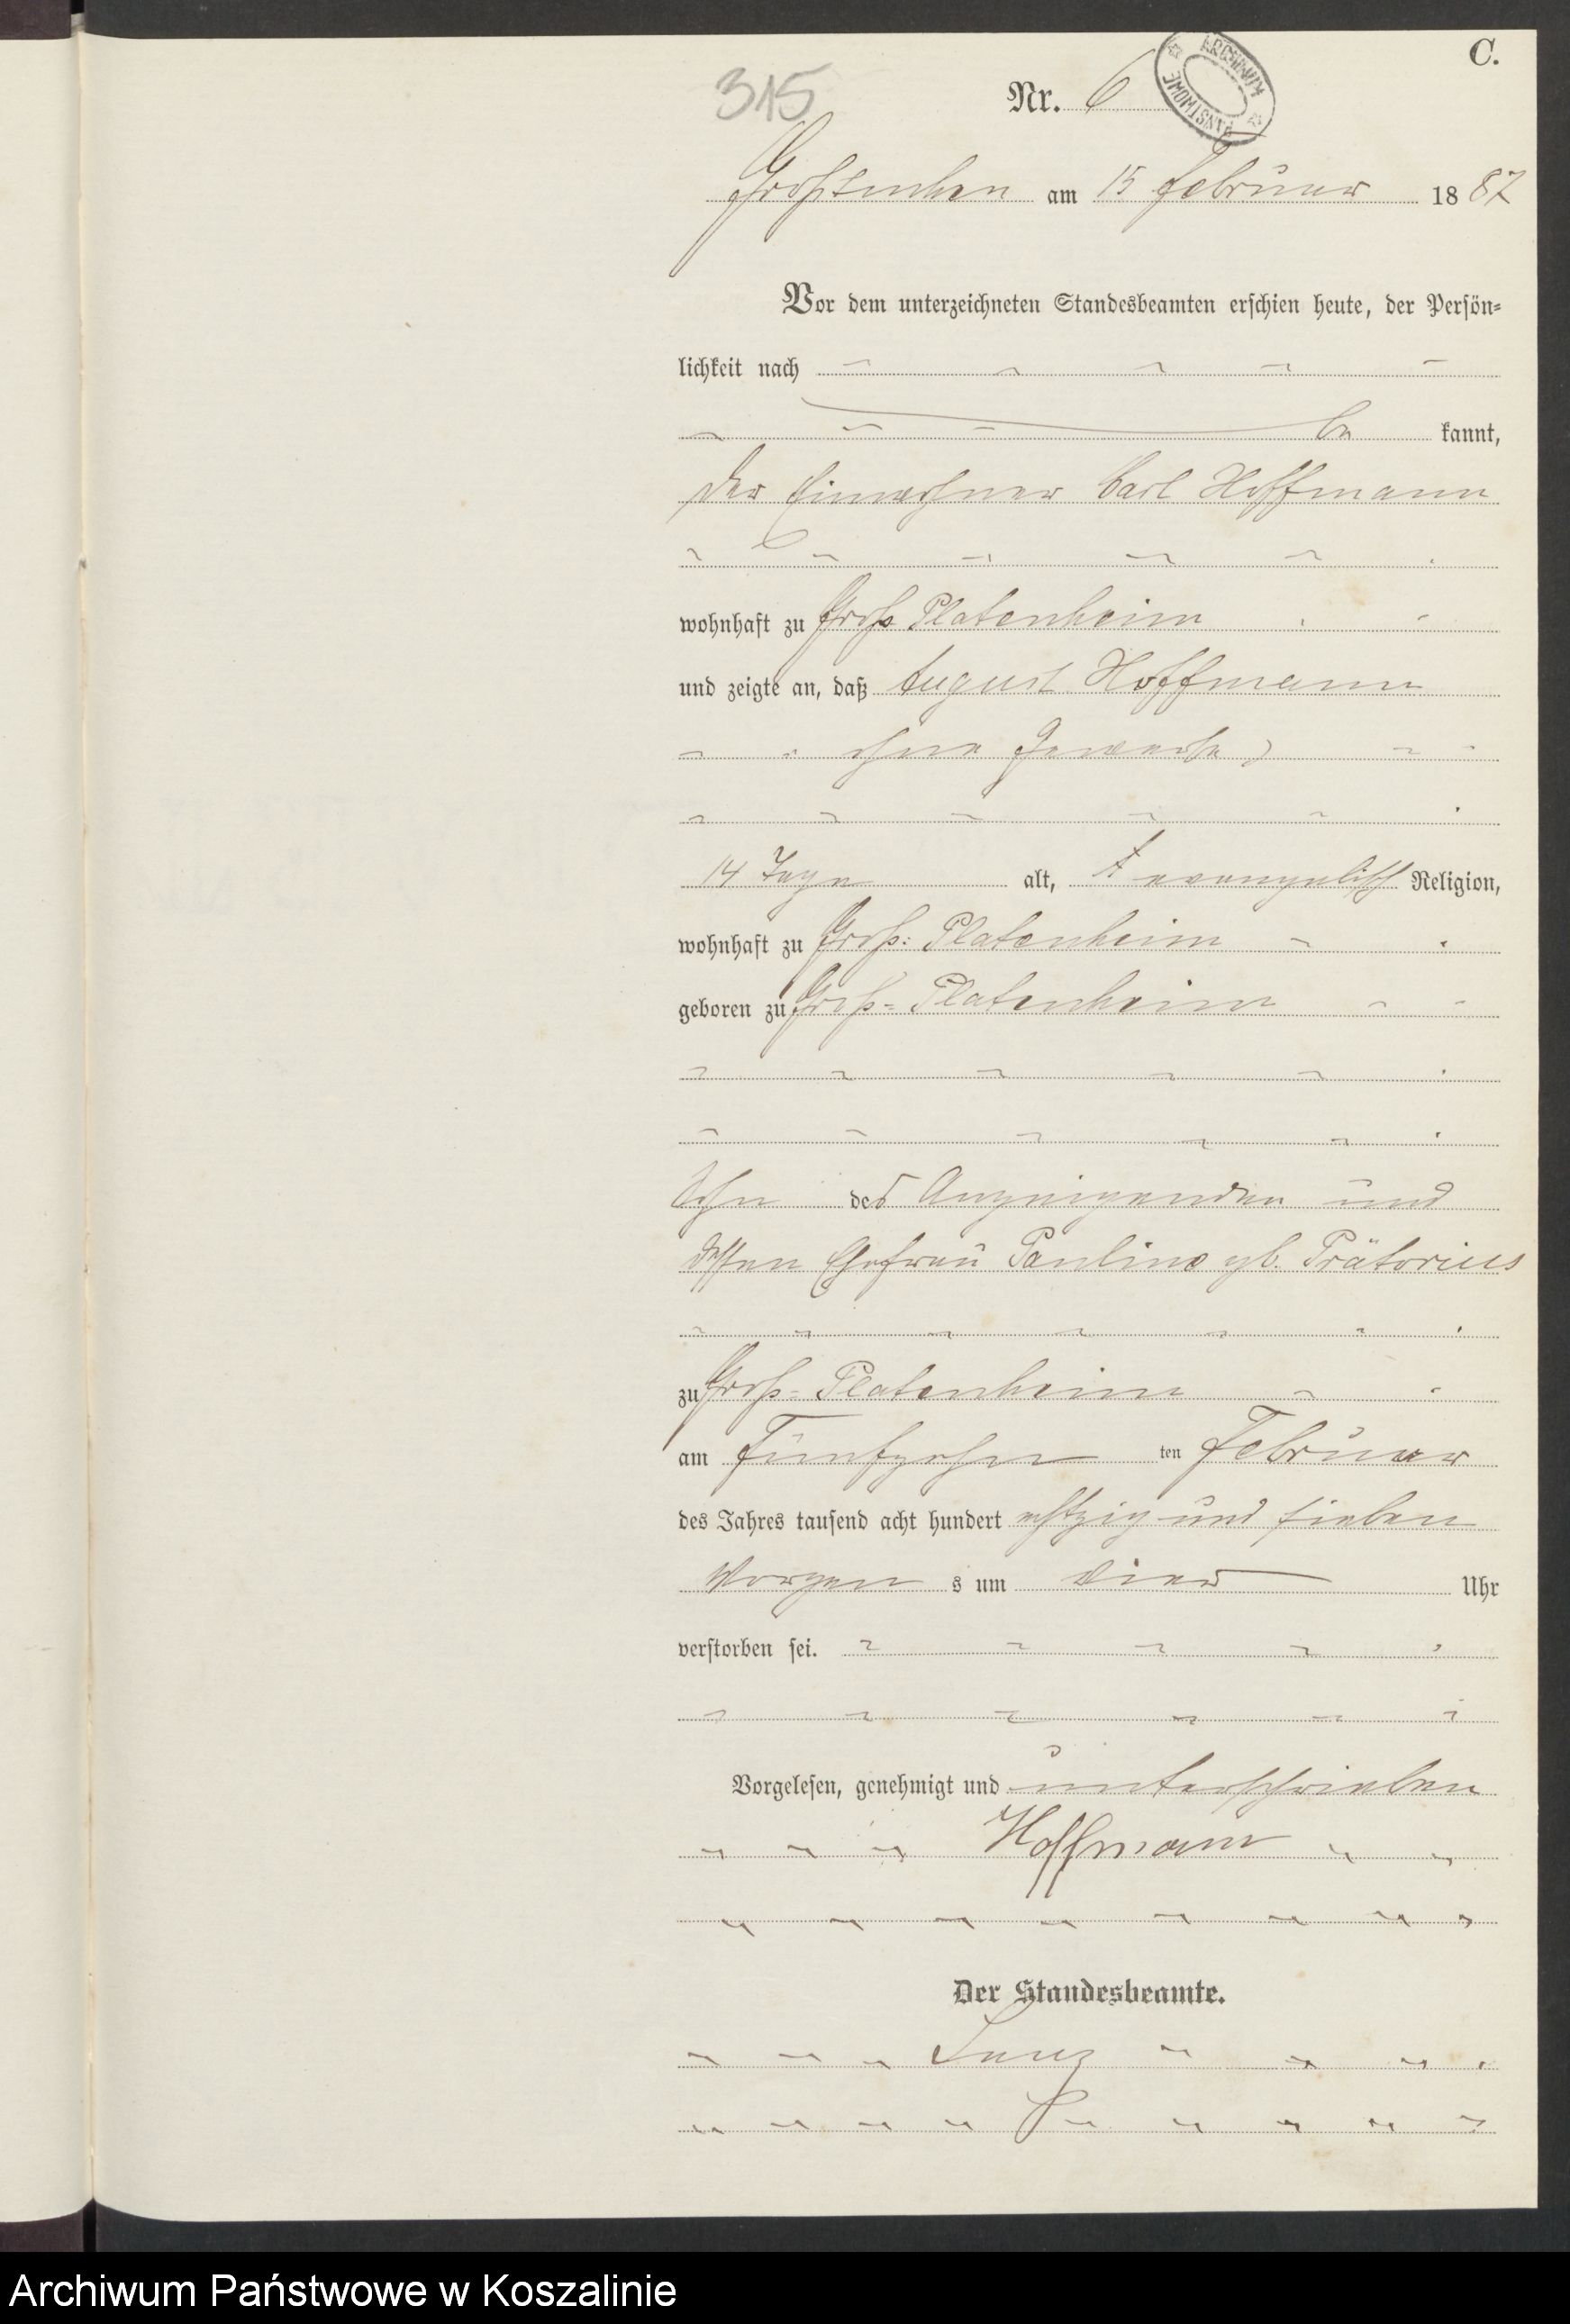 C.
315
Nr. 6
ARCHIWUM PAŃSTWOWE
Großtuchen am 15 Februar 1887
Vor dem unterzeichneten Standesbeamten erschien heute, der Persön=
lichkeit nach
be kannt,
der Einwohner Carl Hoffmann
wohnhaft zu Groß Platenheim
und zeigte an, daß August Hoffmann
ohne Gewerbe,
14 Tage alt, evangelisch Religion,
wohnhaft zu Groß= Platenheim
geboren zu Groß= Platenheim
Sohn des Anzeigenden und
dessen Ehefrau Pauline gb. Prätorius
zu Groß= Platenheim
am Fünfzehn ten Februar
des Jahres tausend acht hundert achtzig und sieben
Morgen s um vier Uhr
verstorben sei.
Vorgelesen, genehmigt und unterschrieben
Hoffmann
Der Standesbeamte.
Archiwum Państwowe w Koszalinie